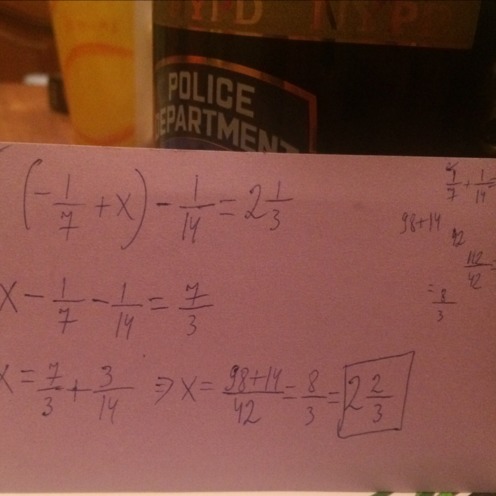 NYPD NYPD
POLICE
DEPARTMENT
(-1/7 + x) - 1/14 = 2 1/3
x - 1/7 - 1/14 = 7/3
x = 7/3 + 3/14 => x = 98+14/42 = 8/3 = 2 2/3
+ 1/14 =
98+14
42
112/42 =
= 8/3